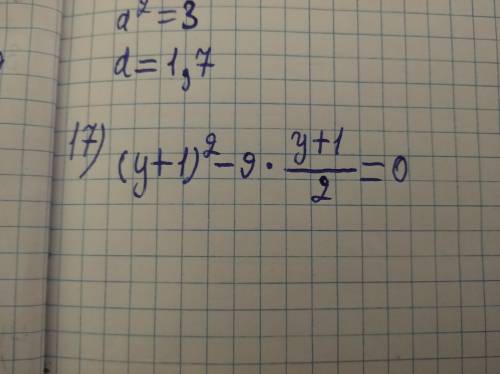 d² = 3
d = 1,7
17) (y+1)² - 9 · \frac{y+1}{2} = 0